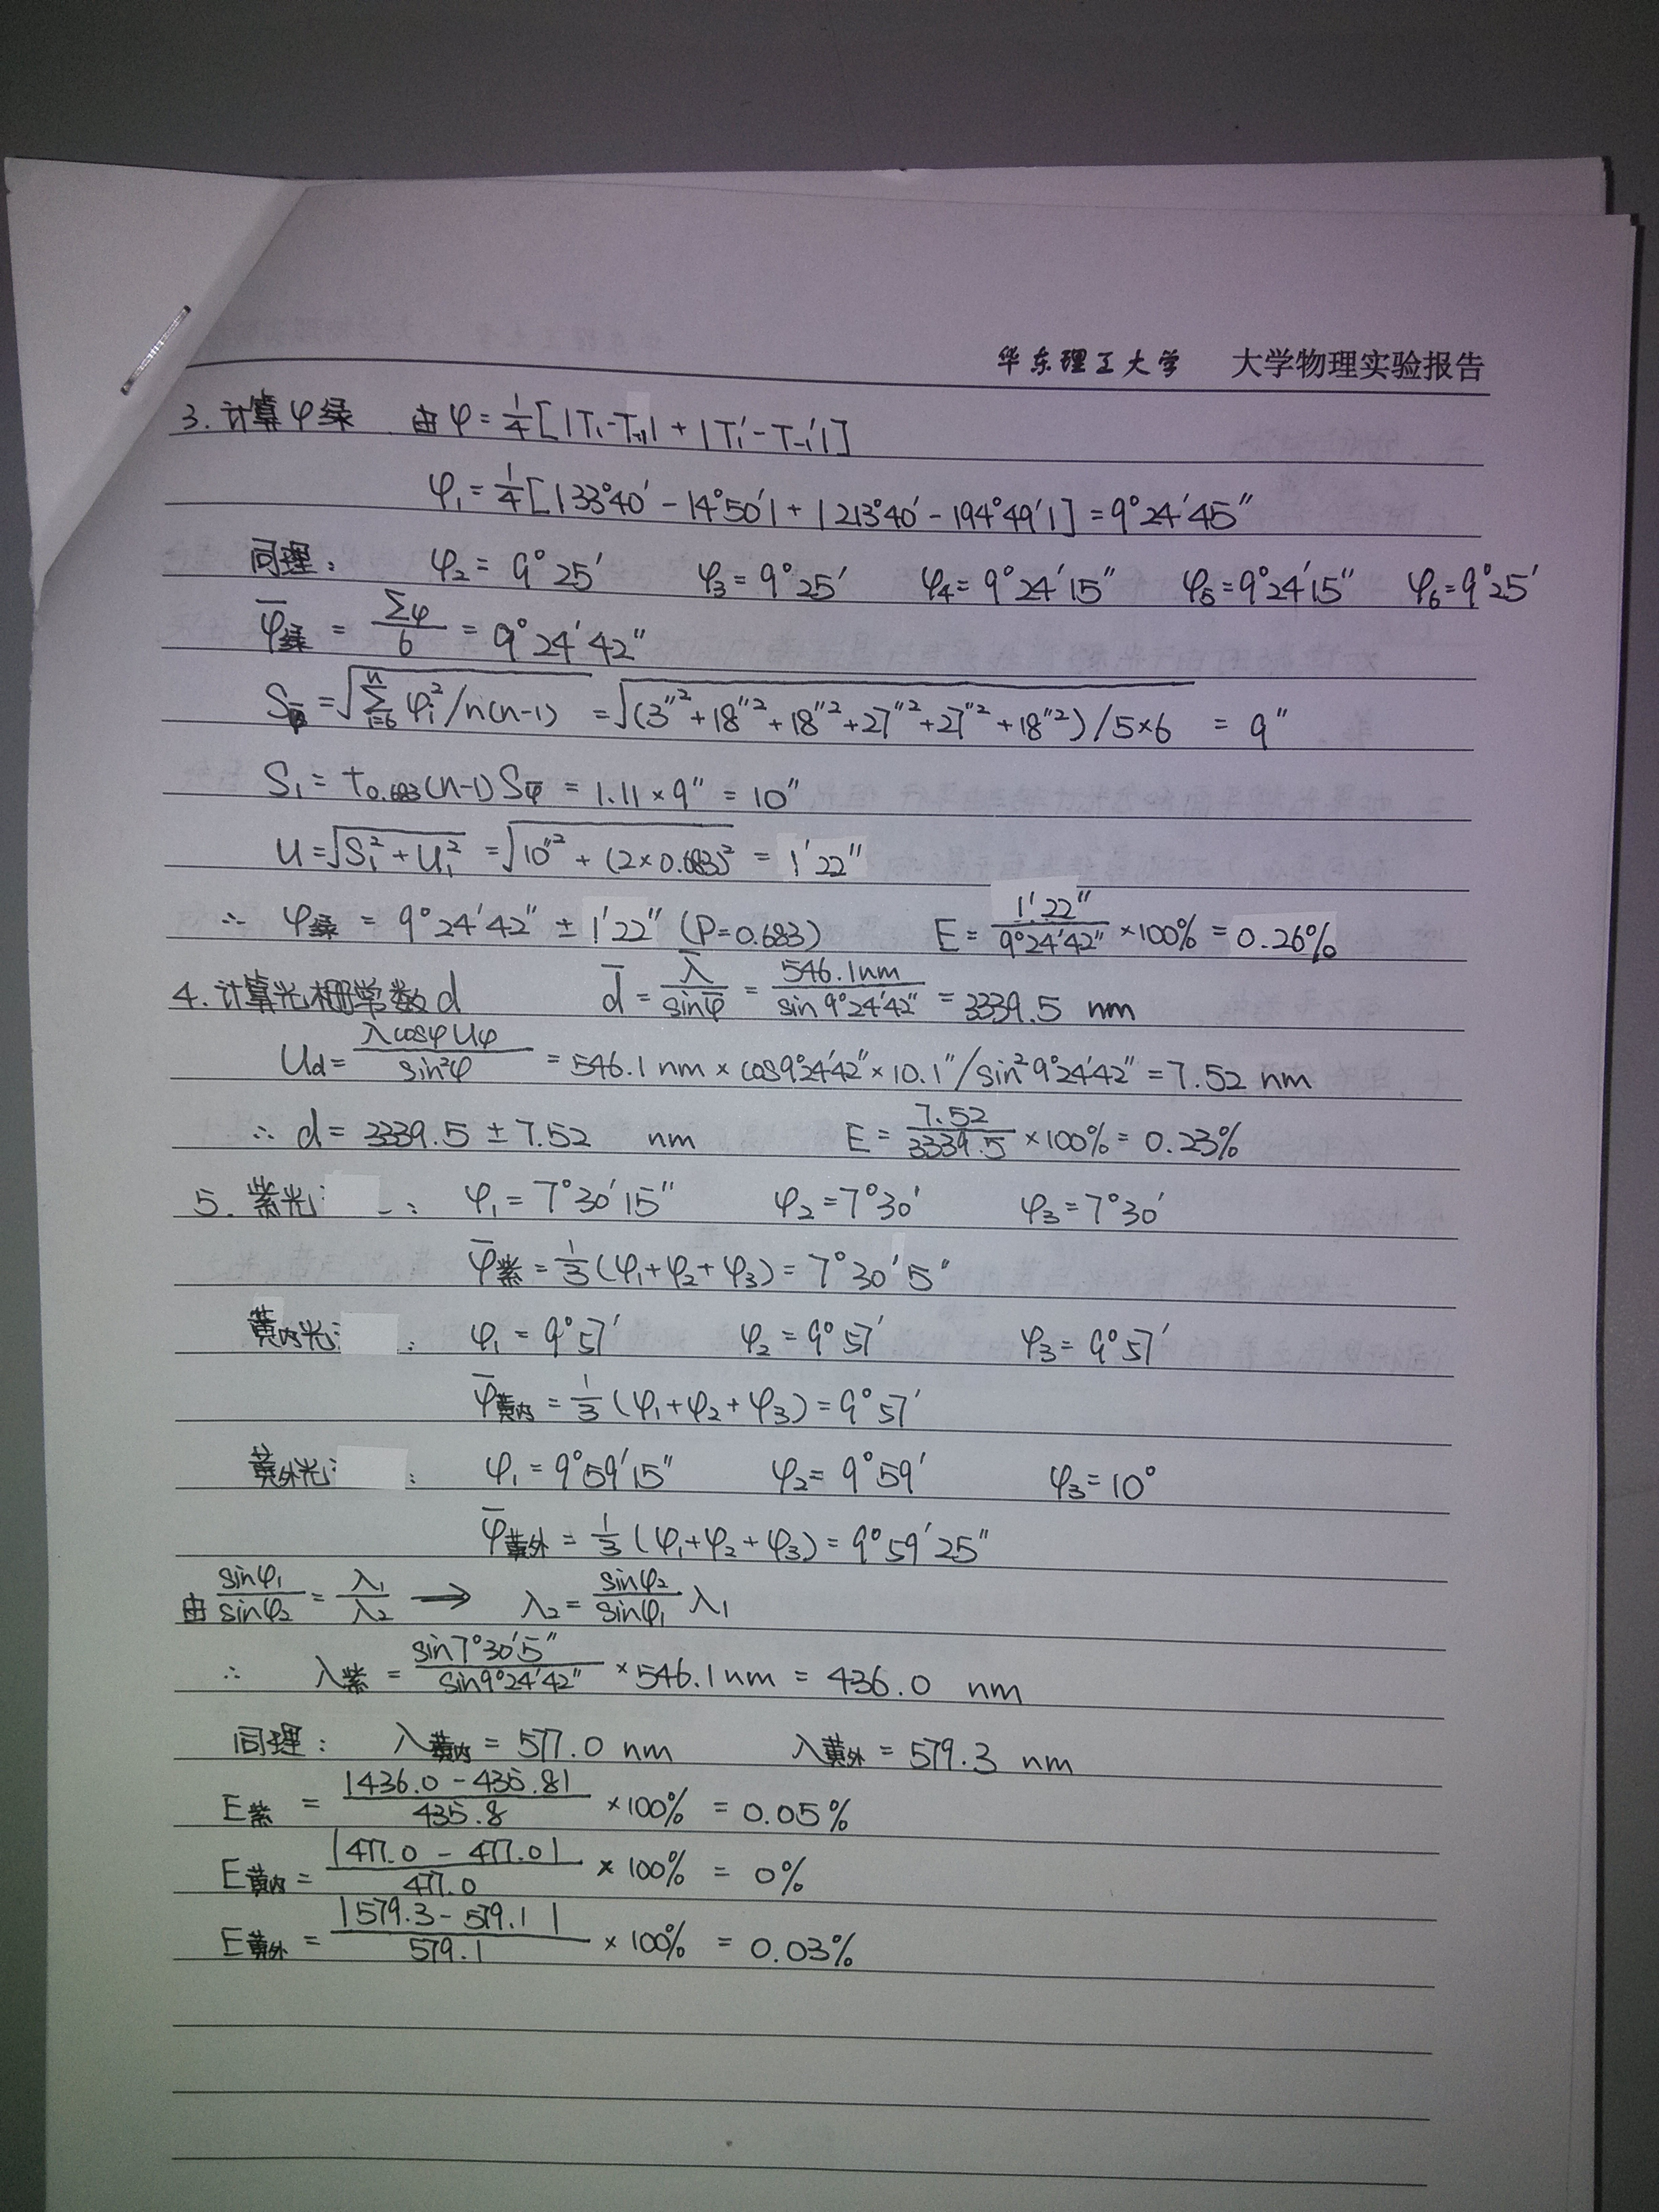 华东理工大学 大学物理实验报告
3. 计算φ绿 由 φ = 1/4 [|T₁-T₋₁| + |T₁′-T₋₁′|]
φ₁ = 1/4 [|33°40′ - 14°50′| + |213°40′ - 194°49′|] = 9°24′45″
同理: φ₂ = 9°25′ φ₃ = 9°25′ φ₄ = 9°24′15″ φ₅ = 9°24′15″ φ₆ = 9°25′
φ̄绿 = Σφ/6 = 9°24′42″
Sφ̄ = √(Σⁿᵢ₌₆ φᵢ²/n(n-1)) = √((3″² + 18″² + 18″² + 27″² + 27″² + 18″²)/5×6) = 9″
S₁ = t₀.₆₈₃(n-1)Sφ̄ = 1.11 × 9″ = 10″
U = √(S₁² + U₁²) = √(10″² + (2×0.683)²) = 1′22″
∴ φ绿 = 9°24′42″ ± 1′22″ (P=0.683) E = 1′22″/9°24′42″ ×100% = 0.26%
4. 计算光栅常数d d̄ = λ̄/sinφ̄ = 546.1nm/sin9°24′42″ = 3339.5 nm
Ud = λcosφUφ/sin²φ = 546.1 nm × cos9°24′42″ × 10.1″/sin²9°24′42″ = 7.52 nm
∴ d = 3339.5 ± 7.52 nm E = 7.52/3339.5 ×100% = 0.23%
5. 紫光: φ₁ = 7°30′15″ φ₂ = 7°30′ φ₃ = 7°30′
φ̄紫 = 1/3 (φ₁+φ₂+φ₃) = 7°30′5″
黄内光: φ₁ = 9°57′ φ₂ = 9°57′ φ₃ = 9°57′
φ̄黄内 = 1/3 (φ₁+φ₂+φ₃) = 9°57′
黄外光: φ₁ = 9°59′15″ φ₂ = 9°59′ φ₃ = 10°
φ̄黄外 = 1/3 (φ₁+φ₂+φ₃) = 9°59′25″
由 sinφ₁/sinφ₂ = λ₁/λ₂ → λ₂ = sinφ₂/sinφ₁ λ₁
∴ λ紫 = sin7°30′5″/sin9°24′42″ × 546.1nm = 436.0 nm
同理: λ黄内 = 577.0 nm λ黄外 = 579.3 nm
E紫 = |436.0 - 435.8|/435.8 ×100% = 0.05%
E黄内 = |477.0 - 477.0|/477.0 × 100% = 0%
E黄外 = |579.3 - 579.1|/579.1 × 100% = 0.03%